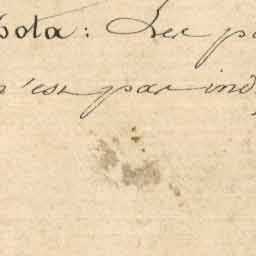 ota: Les p
n'est pas ind